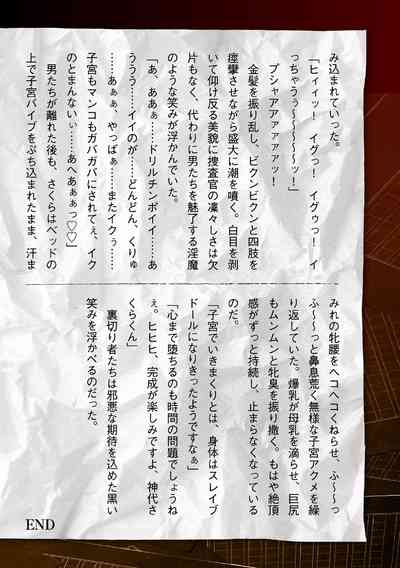 み込まれていった。
「ヒィィッ！　イグっ！　イグゥっ！　イ
っちゃうぅ〜〜〜〜〜〜ッ！」
プシャアァァァァァァッ！
金髪を振り乱し、ビクンビクンと四肢を
痙攣させながら盛大に潮を噴く。白目を剥
いて仰け反る美貌に捜査官の凜々しさは欠
片もなく、代わりに男たちを魅了する淫魔
のような笑みが浮かんでいた。
「あ、ああぁ……ドリルチンポイイ……あ
ううう……イイのが……どんどん、くりゅ
……あぁぁ、やっばぁ……またイクぅ……
子宮もマンコもガバガバにされてぇ、イク
のとまんないぃ……あへあぁぁっ♡♡」
男たちが離れた後も、さくらはベッドの
上で子宮バイブをぶち込まれたまま、汗ま
みれの牝腰をヘコヘコくねらせ、ふ〜〜っ
ふ〜〜っと鼻息荒く無様な子宮アクメを繰
り返していた。爆乳が母乳を滴らせ、巨尻
もムンムンと牝臭を振り撒く。もはや絶頂
感がずっと持続し、止まらなくなっている
のだ。
「子宮でいきまくりとは、身体はスレイブ
ドールになりきったようですなぁ」
「心まで堕ちるのも時間の問題でしょうね
ぇ。ヒヒヒ、完成が楽しみですよ、神代さ
くらくん」
裏切り者たちは邪悪な期待を込めた黒い
笑みを浮かべるのだった。
END